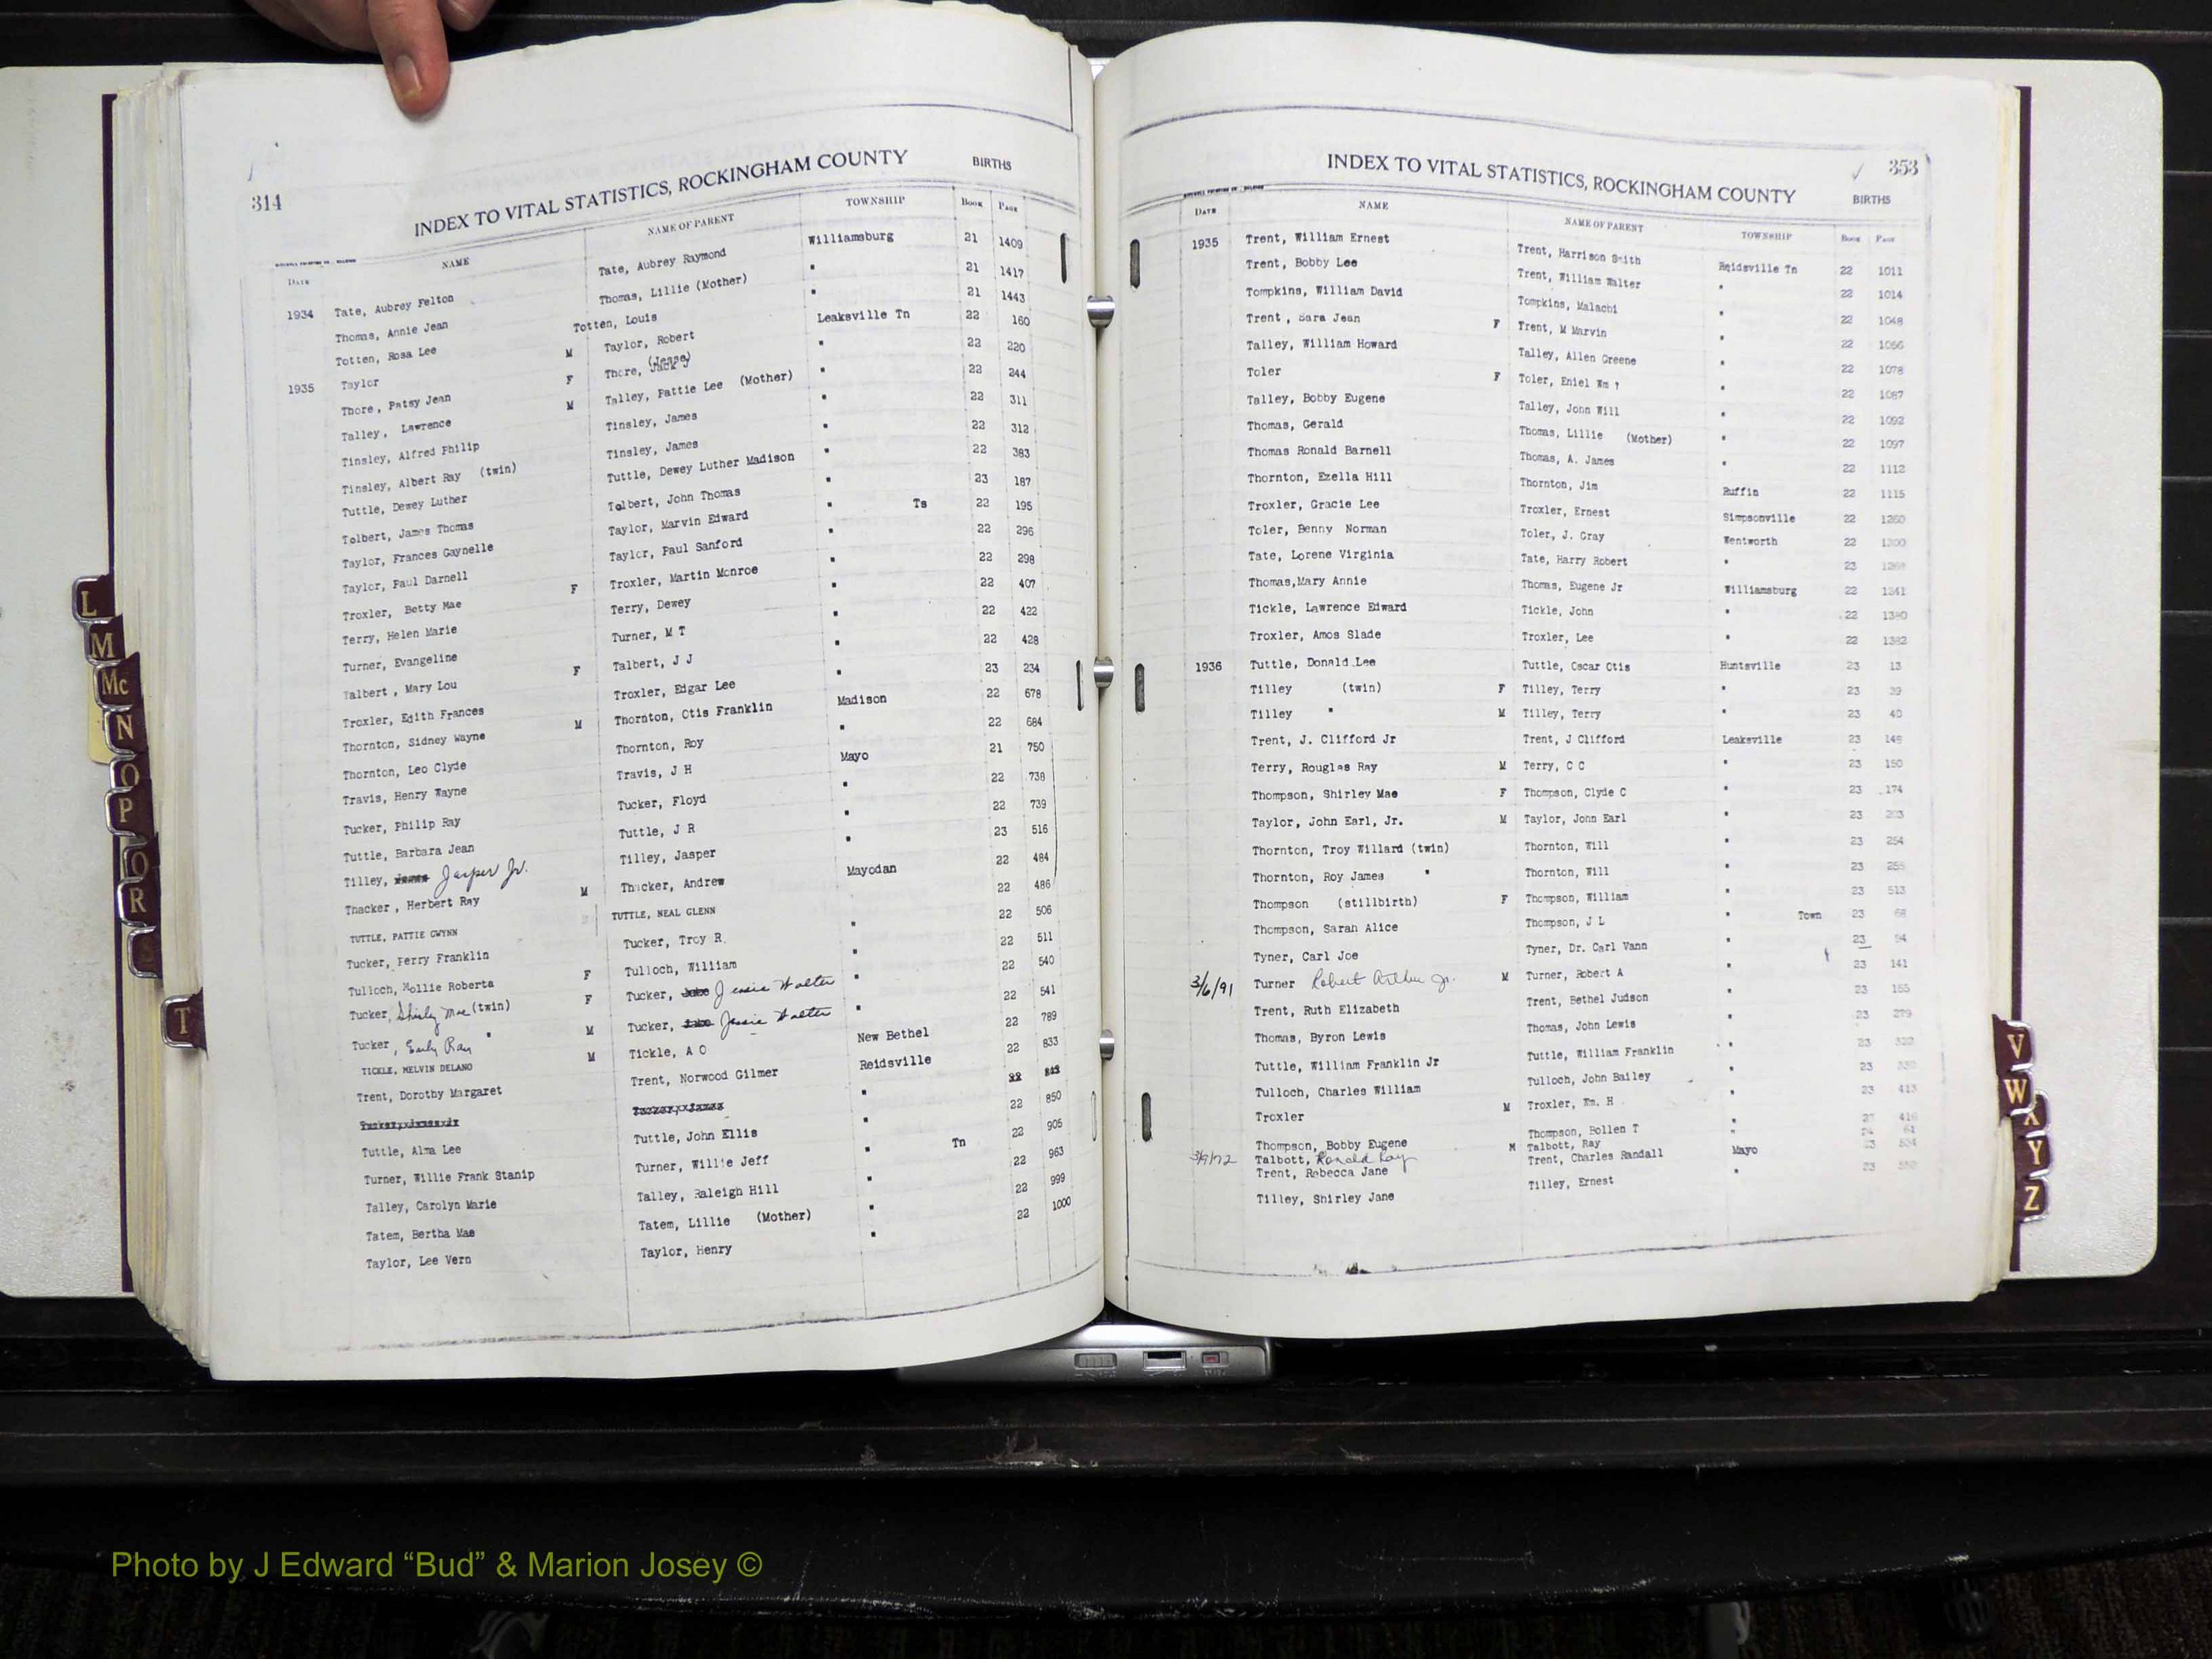 314
INDEX TO VITAL STATISTICS, ROCKINGHAM COUNTY BIRTHS
DATE NAME NAME OF PARENT TOWNSHIP BOOK PAGE
1934 Tate, Aubrey Felton Tate, Aubrey Raymond Williamsburg 21 1409
Thomas, Annie Jean Thomas, Lillie (Mother) " 21 1417
Totten, Rosa Lee Totten, Louis " 21 1443
1935 Taylor M Taylor, Robert Leaksville Tn 22 160
Thore, Patsy Jean F Thore, Jack J (Jesse) " 22 220
Talley, Lawrence M Talley, Pattie Lee (Mother) " 22 244
Tinsley, Alfred Philip Tinsley, James " 22 311
Tinsley, Albert Ray (twin) Tinsley, James " 22 312
Tuttle, Dewey Luther Tuttle, Dewey Luther Madison " 22 383
Tolbert, James Thomas Tolbert, John Thomas " 23 187
Taylor, Frances Gaynelle Taylor, Marvin Edward " Ts 22 195
Taylor, Paul Darnell Taylor, Paul Sanford " 22 296
Troxler, Betty Mae F Troxler, Martin Monroe " 22 298
Terry, Helen Marie Terry, Dewey " 22 407
Turner, Evangeline Turner, M T " 22 422
Talbert, Mary Lou F Talbert, J J " 22 428
Troxler, Edith Frances Troxler, Edgar Lee " 23 234
Thornton, Sidney Wayne M Thornton, Otis Franklin Madison 22 678
Thornton, Leo Clyde Thornton, Roy " 22 684
Travis, Henry Wayne Travis, J H Mayo 21 750
Tucker, Philip Ray Tucker, Floyd " 22 738
Tuttle, Barbara Jean Tuttle, J R " 22 739
Tilley, Jasper Jr. Tilley, Jasper " 23 516
Thacker, Herbert Ray M Thacker, Andrew Mayodan 22 484
TUTTLE, PATTIE GWYNN TUTTLE, NEAL GLENN 22 486
Tucker, Perry Franklin Tucker, Troy R. " 22 506
Tulloch, Mollie Roberta F Tulloch, William " 22 511
Tucker, Shirley Mae (twin) F Tucker, Jessie Walter " 22 540
Tucker, Early Ray " M Tucker, Jessie Walter " 22 541
TICKLE, MELVIN DELANO M Tickle, A O New Bethel 22 789
Trent, Dorothy Margaret Trent, Norwood Gilmer Reidsville 22 833
Tuttle, Alma Lee Tuttle, John Ellis " 22 850
Turner, Willie Frank Stanip Turner, Willie Jeff " Tn 22 905
Talley, Carolyn Marie Talley, Raleigh Hill " 22 963
Tatem, Bertha Mae Tatem, Lillie (Mother) " 22 999
Taylor, Lee Vern Taylor, Henry " 22 1000
353
INDEX TO VITAL STATISTICS, ROCKINGHAM COUNTY BIRTHS
DATE NAME NAME OF PARENT TOWNSHIP BOOK PAGE
1935 Trent, William Ernest Trent, Harrison Smith Reidsville Tn 22 1011
Trent, Bobby Lee Trent, William Walter " 22 1014
Tompkins, William David Tompkins, Malachi " 22 1048
Trent, Sara Jean F Trent, M Marvin " 22 1056
Talley, William Howard Talley, Allen Greene " 22 1078
Toler F Toler, Eniel Wm ? " 22 1087
Talley, Bobby Eugene Talley, John Will " 22 1092
Thomas, Gerald Thomas, Lillie (Mother) " 22 1097
Thomas Ronald Barnell Thomas, A. James " 22 1112
Thornton, Ezella Hill Thornton, Jim Ruffin 22 1115
Troxler, Gracie Lee Troxler, Ernest Simpsonville 22 1260
Toler, Benny Norman Toler, J. Gray Wentworth 22
Tate, Lorene Virginia Tate, Harry Robert " 23
Thomas, Mary Annie Thomas, Eugene Jr Williamsburg 22 1341
Tickle, Lawrence Edward Tickle, John " 22 1380
Troxler, Amos Slade Troxler, Lee " 22 1382
1936 Tuttle, Donald Lee Tuttle, Oscar Otis Huntsville 23 13
Tilley (twin) F Tilley, Terry " 23 39
Tilley " M Tilley, Terry " 23 40
Trent, J. Clifford Jr Trent, J Clifford Leaksville 23 149
Terry, Rouglas Ray M Terry, C C " 23 150
Thompson, Shirley Mae F Thompson, Clyde C " 23 174
Taylor, John Earl, Jr. M Taylor, John Earl " 23 203
Thornton, Troy Willard (twin) Thornton, Will " 23 254
Thornton, Roy James " Thornton, Will " 23 255
Thompson (stillbirth) F Thompson, William " 23 513
Thompson, Sarah Alice Thompson, J L " Town 23 68
Tyner, Carl Joe Tyner, Dr. Carl Vann " 23 94
3/6/91 Turner Robert Arthur Jr. M Turner, Robert A " 23 141
Trent, Ruth Elizabeth Trent, Bethel Judson " 23 155
Thomas, Byron Lewis Thomas, John Lewis " 23 279
Tuttle, William Franklin Jr Tuttle, William Franklin " 23
Tulloch, Charles William Tulloch, John Bailey " 23
Troxler M Troxler, Wm. H " 23 413
Thompson, Bobby Eugene Thompson, Rollen T " 416
Talbott, Ronald Ray M Talbott, Ray " 61
Trent, Rebecca Jane Trent, Charles Randall Mayo 23
Tilley, Shirley Jane Tilley, Ernest " 23
L
M
Mc
N
O
P
R
S
T
V
W
X
Y
Z
Photo by J Edward “Bud” & Marion Josey ©